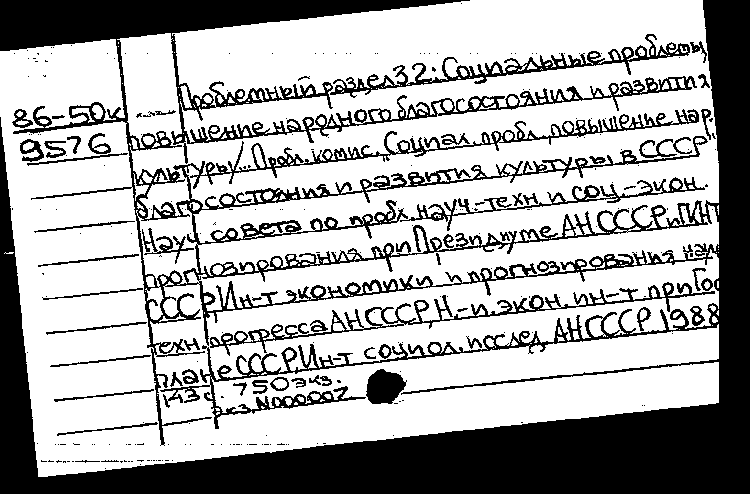 86-50к
9576
Проблемный раздел 3 2: Социальные проблемы,
повышение народного благосостояния и развития
культуры/... Пробл. комис. „Социал. пробл., повышение нар.
благосостояния и развития культуры в СССР"
Науч. совета по пробл. науч.-техн. и соц.-экон.
прогнозирования при Президиуме АН СССР и ГКНТ
СССР, Ин-т экономики и прогнозирования науч.
техн. прогресса АН СССР, Н.-и. экон. ин-т при Гос
плане СССР, Ин-т социол. исслед. АН СССР, 1988
143 с. 750 экз.
экз. N000002